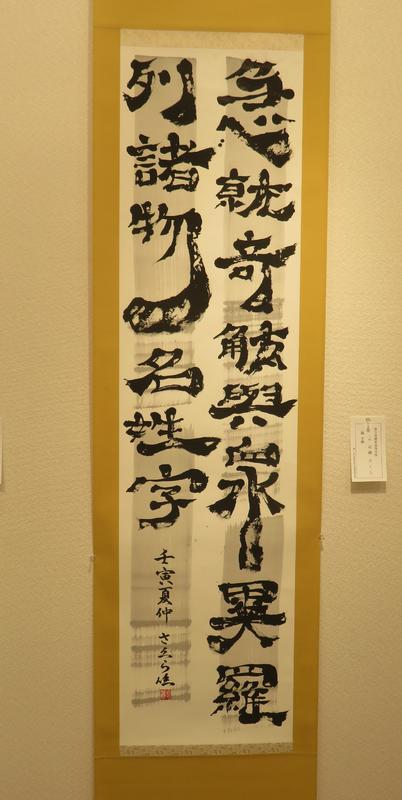 急就奇觚與衆異羅
列諸物名姓字
壬寅夏仲